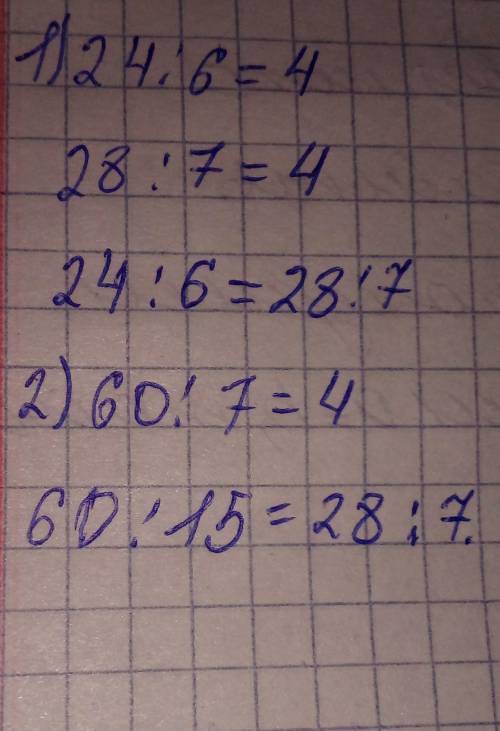 1) 24 : 6 = 4
28 : 7 = 4
24 : 6 = 28 : 7
2) 60 : 7 = 4
60 : 15 = 28 : 7.